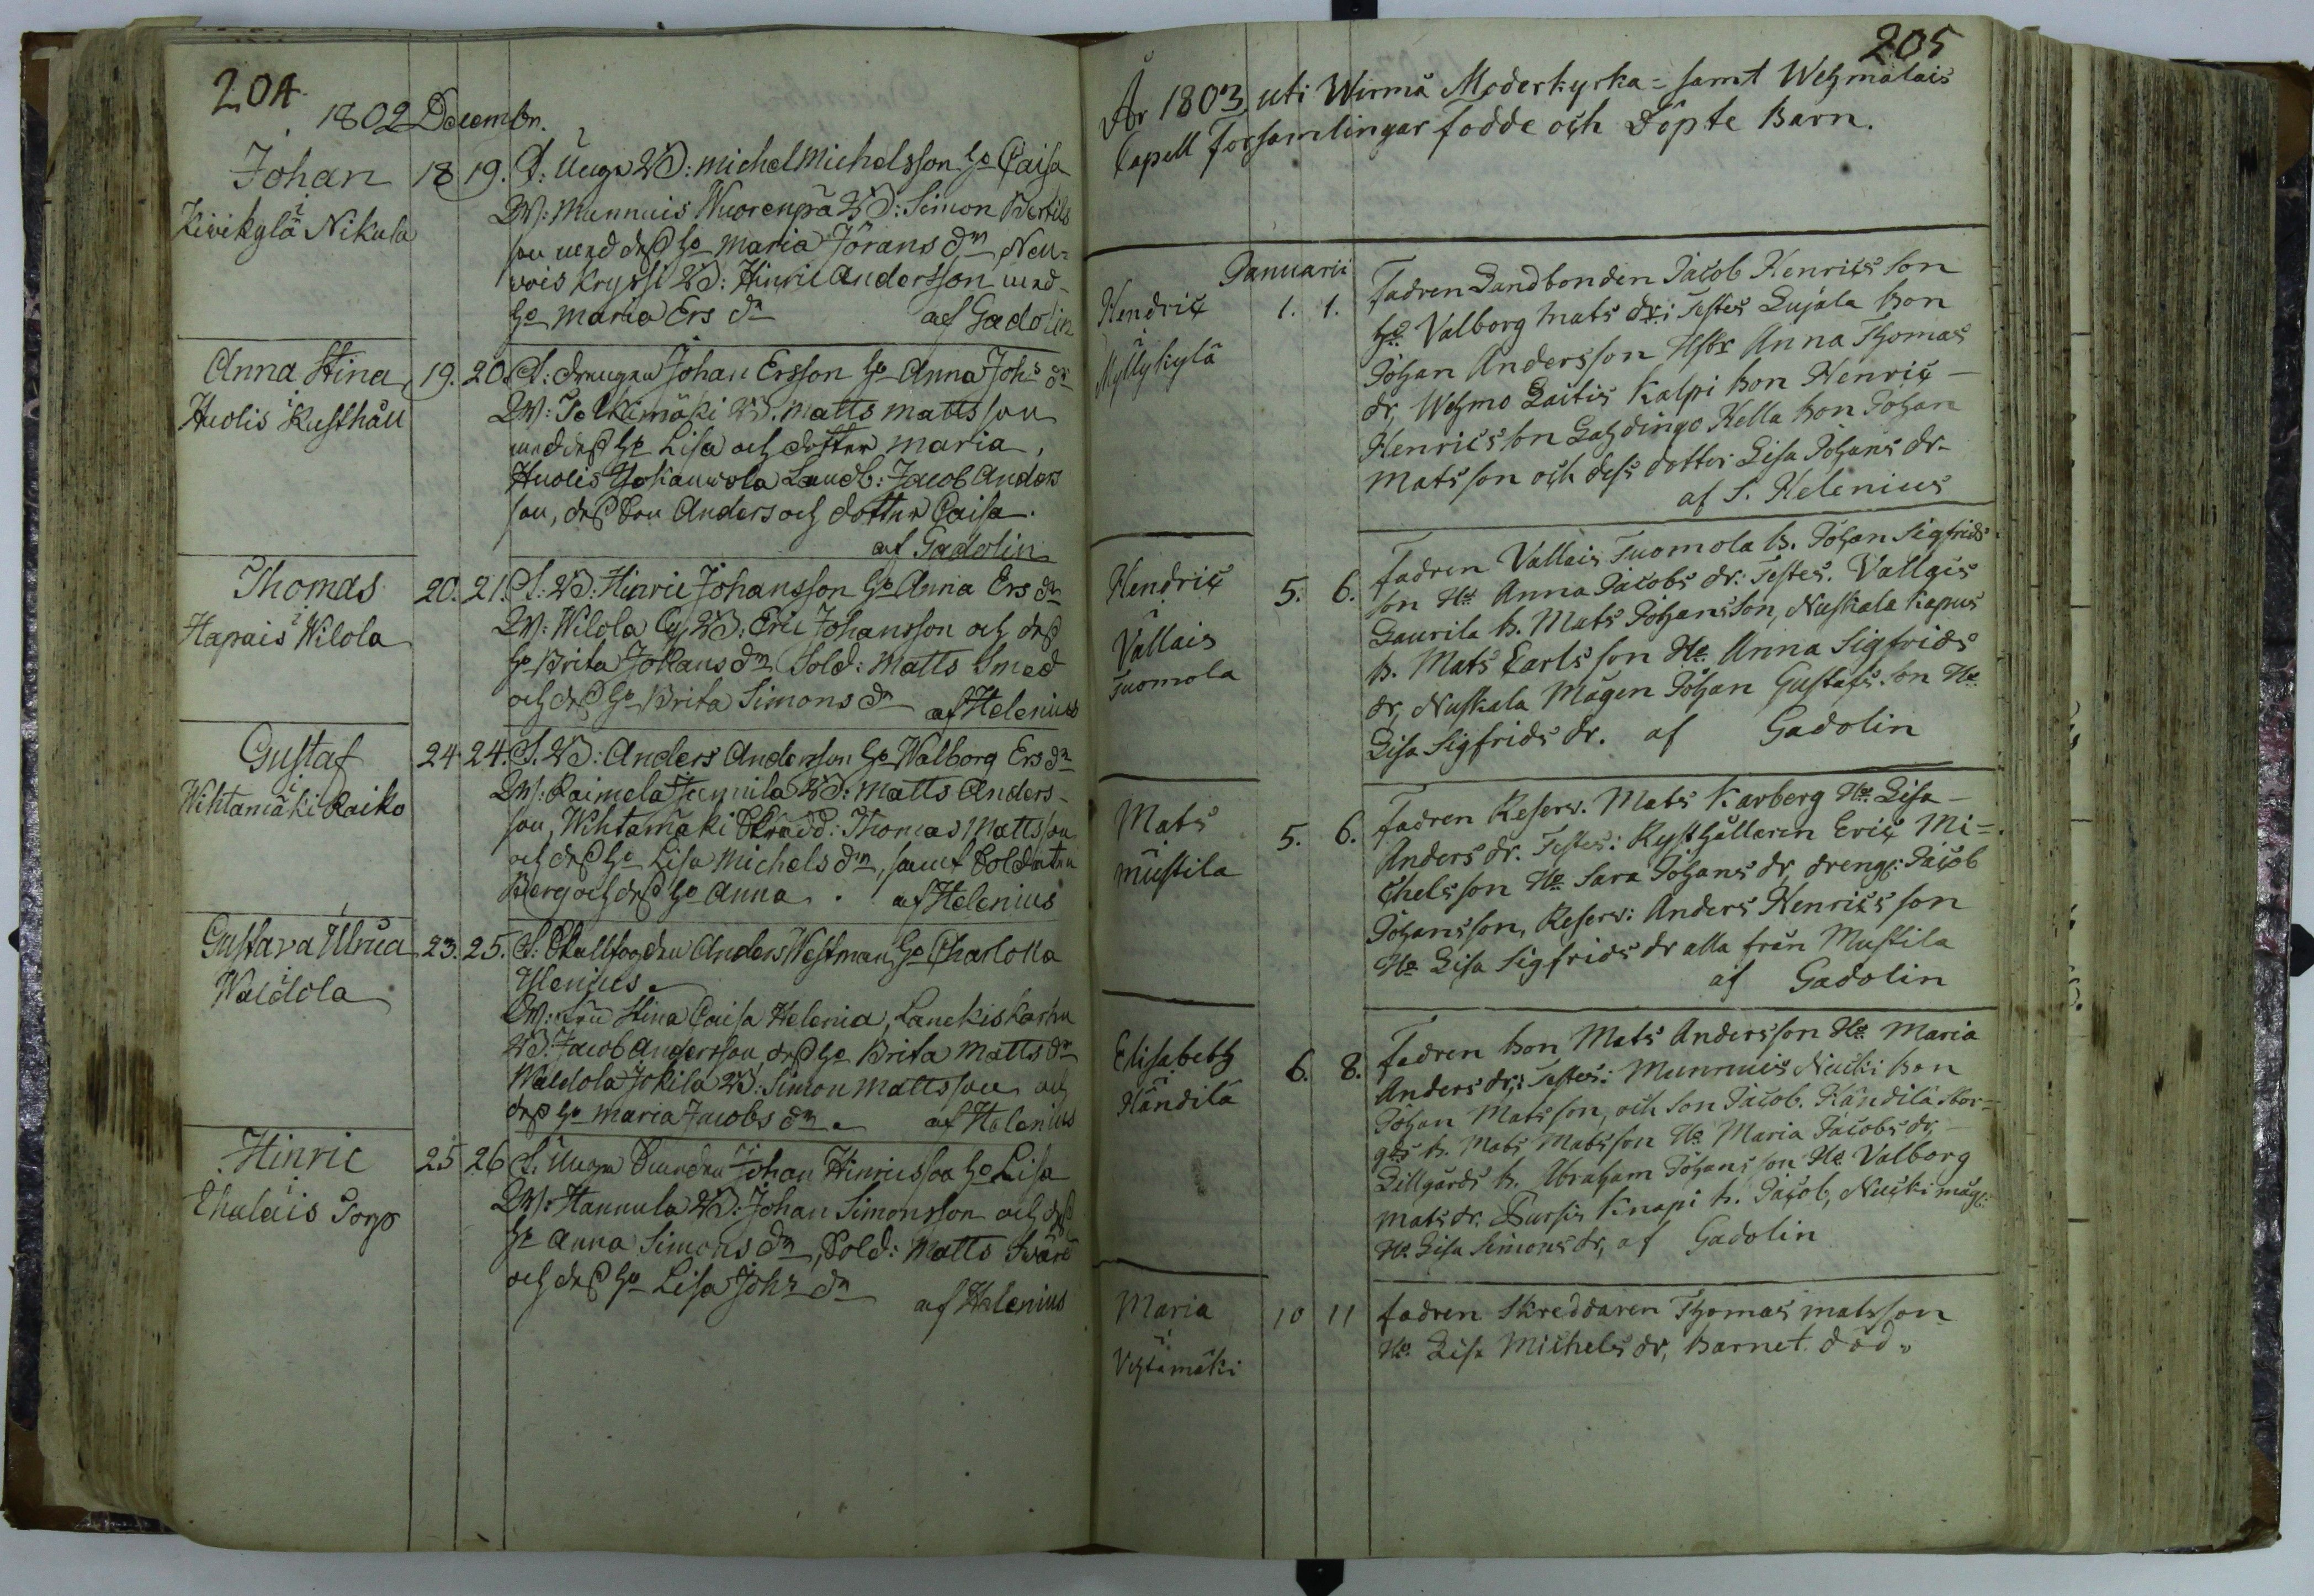 204.
1802 Decembr.
Johan 18 19. F: Unge Bd: Michel Michelsson H:o Caisa
i
Kivikylä Nikula
W: Munnuis Wuorenpä Bd: Simon Bertils
son med dess H:o Maria Jörans dr
wois Kryssi Bd: Hinric Andersson med
H:o Maria Ers dr af Gadolin
Anna Stina 19. 20. F: Drengen Johan Ersson H:o Anna Joh:s dr
i
Huolis Kusthåll
W: Tolkimäki Bd. Matts Mattsson
med dess H:o Lisa och dotter Maria,
Huolis Yohannola Landb: Jacob Anders
son, dess Son Anders och dotter Caisa.
af Gadolin
Thomas 20. 21. F: Bd: Hinric Johansson H:o Anna Ers dr
i
Hapais Wilola
W: Wilola Bd: Eric Johansson och dess
H:o Brita Johans dr Sold: Matts Smed
och dess H:o Brita Simons dr af Helenius
Gustaf 24 24. F. Bd: Anders Andersson H:o Walborg Ers dr
i
Wihtamäki Raiko
W: Raimela Bd: Matts Anders-
son, Wihtamäki Skrädd: Thomas Mattsson
och dess H:o Lisa Michels dr, samt Soldaten
Berg och dess H:o Anna. af Helenius
Gustava Ulrica 23. 25. F. Stallfogden Anders Westman H:o Charlotta
i
Waidola
Ilenius.
W: Fru Stina Caisa Helenia, Lanckis Karhu
Bd: Jacob Andersson, dess H:o Brita Matts dr
Waldola Jokila Bd: Simon Mattsson och
dess H:o Maria Jacobs dr. af Helenius
Hinric 25 26 F. Unge Bunden Johan Hinricsson H:o Lisa
i
Thalais Torp
W: Hannula Bd: Johan Simonsson och dess
H:o Anna Simons dr, Sold: Matts Swärd
och dess H:o Lisa Joh:s dr af Helenius
205
År 1803, uti Wirmå Moderkyrka = samt Wehmalais
Capell Församlingar födde och Döpte Barn.
Januarii
Hendric 1. 1. Fadren Landbonden Jacob Henricsson
i
Myllykylä
H:o Valborg Mats dr: Testes Lujala Bon
Johan Andersson Anna Thomas
dr, Wehmo Laitis Kalpi bon Henric
Henricsson Lahdingo Kella bon Johan
Matsson och dess dotter Lisa Johans dr
af S. Helenius
Hendric 5. 6. Fadren Vallais Tuomola b. Johan Sigfrids
i
Vallais
Tuomola
son H:o Anna Jacobs dr: Testes. Vallais
Laurila b. Mats Johansson, Nuskala Kapus
b. Mats Carlsson H:o Anna Sigfrids
dr, Nuskala Mågen Johan Gustafsson H:o
Lisa Sigfrids dr. af Gadolin
Mats 5. 6. Fadren Reserv. Mats Karberg H:o Lisa
i
Mustila
Anders dr. Testes: Rysthållaren Eric Mi=
chelsson H:o Sara Johans dr, dreng: Jacob
Johansson, Reserv: Anders Henricsson
H:o Lisa Sigfrids dr alla från Mustila
af Gadolin
Elisabeth 6. 8. Fadren bon Mats Andersson H:o Maria
i
Händilä
Anders dr: Testes: Munnuis Nucki bon
Johan Matsson, och Son Jacob. Händilä Stor=
gds b. Mats Matsson H:o Maria Jacobs dr,
Lillgårds b. Abraham Johansson H:o Valborg
Mats dr. Pursis Knapi b. Jacob, Nucki måg:
H:o Lisa Simons dr, af Gadolin
Maria 10 11 Fadren Skreddaren Thomas Matsson
i
Vehtamäki
H:o Lisa Michels dr, Barnet död.